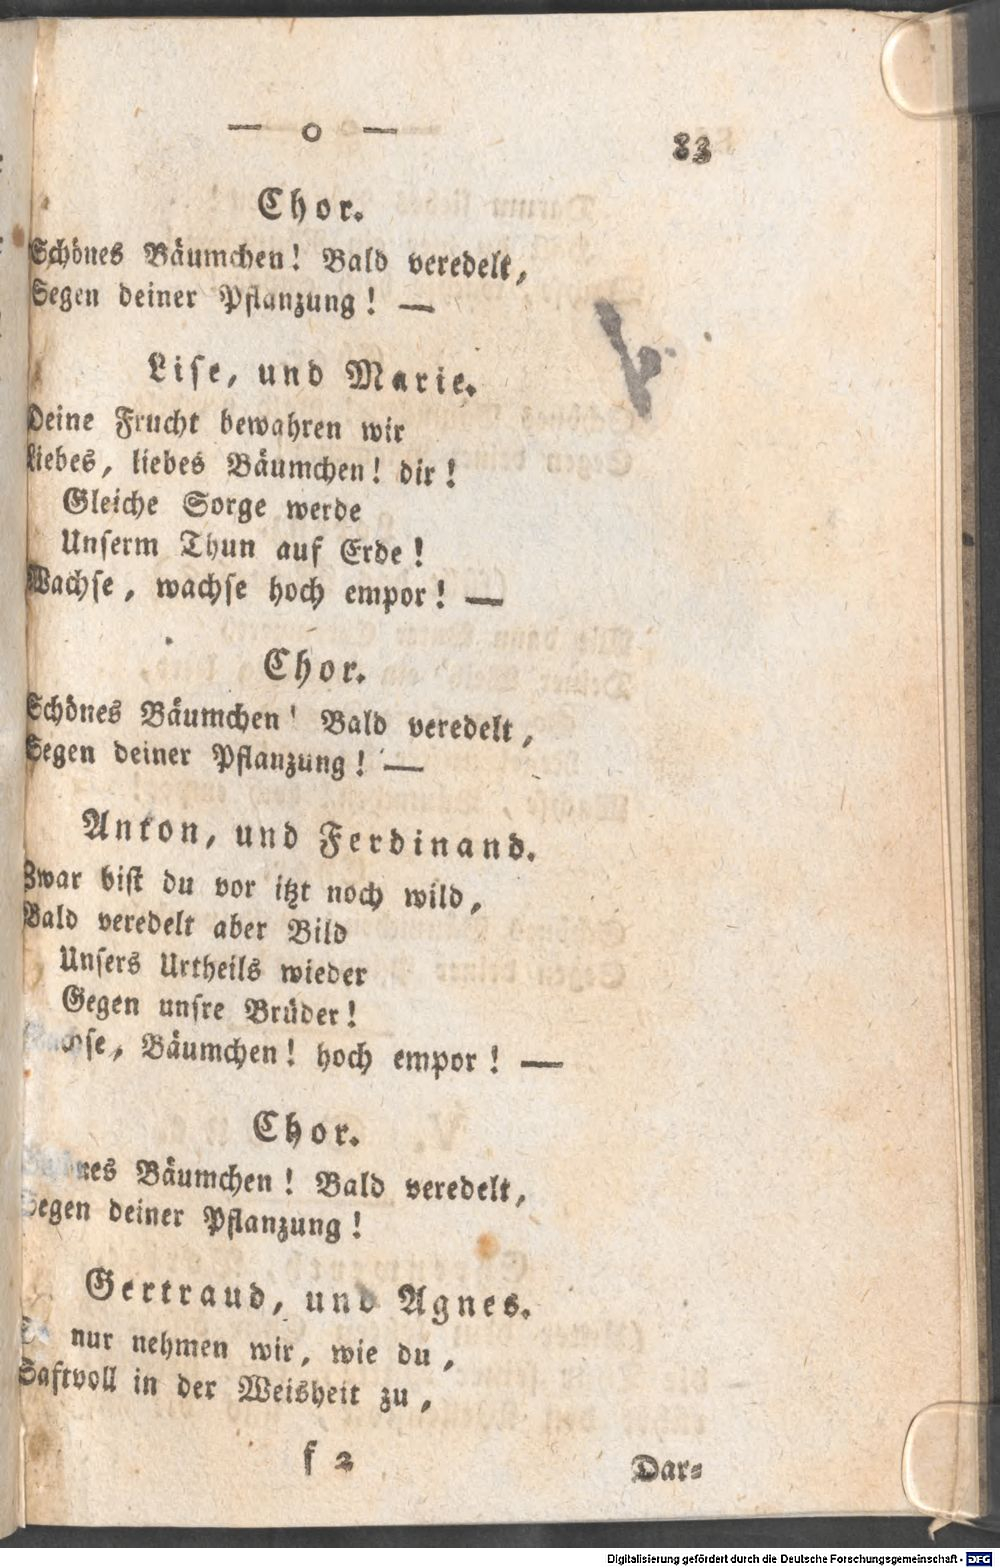 — o — 83
Chor.
Schönes Bäumchen! Bald veredelt,
Segen deiner Pflanzung! —
Lise, und Marie.
Deine Frucht bewahren wir
Liebes, liebes Bäumchen! dir!
Gleiche Sorge werde
Unserm Thun auf Erde!
Wachse, wachse hoch empor! —
Chor.
Schönes Bäumchen! Bald veredelt,
Segen deiner Pflanzung! —
Anton, und Ferdinand.
Zwar bist du vor itzt noch wild,
Bald veredelt aber Bild
Unsers Urtheils wieder
Gegen unsre Brüder!
Wachse, Bäumchen! hoch empor! —
Chor.
Schönes Bäumchen! Bald veredelt,
Segen deiner Pflanzung!
Gertraud, und Agnes.
nur nehmen wir, wie du,
Saftvoll in der Weisheit zu,
f 2 Dar-
Digitalisierung gefördert durch die Deutsche Forschungsgemeinschaft - DFG